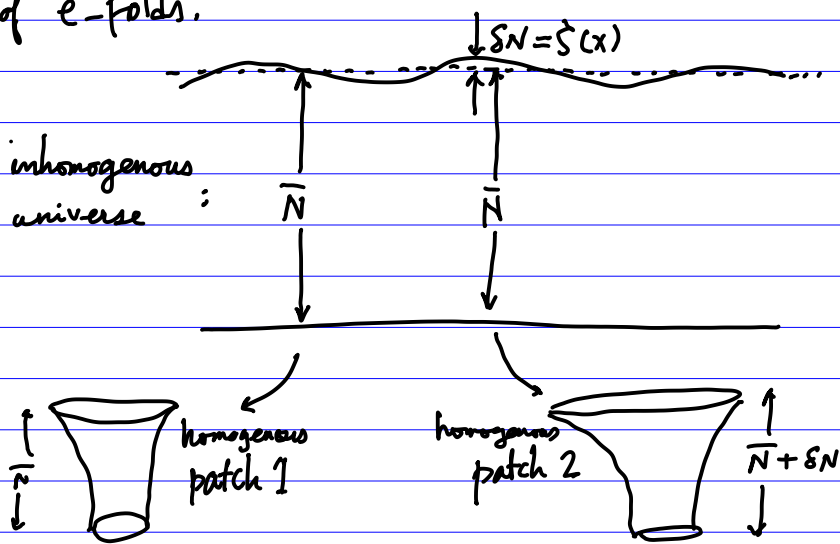 of e-folds.
δN = ζ(x)
inhomogenous
universe :
N̄ N̄
homogenous
patch 1
homogenous
patch 2
N̄
N̄ + δN